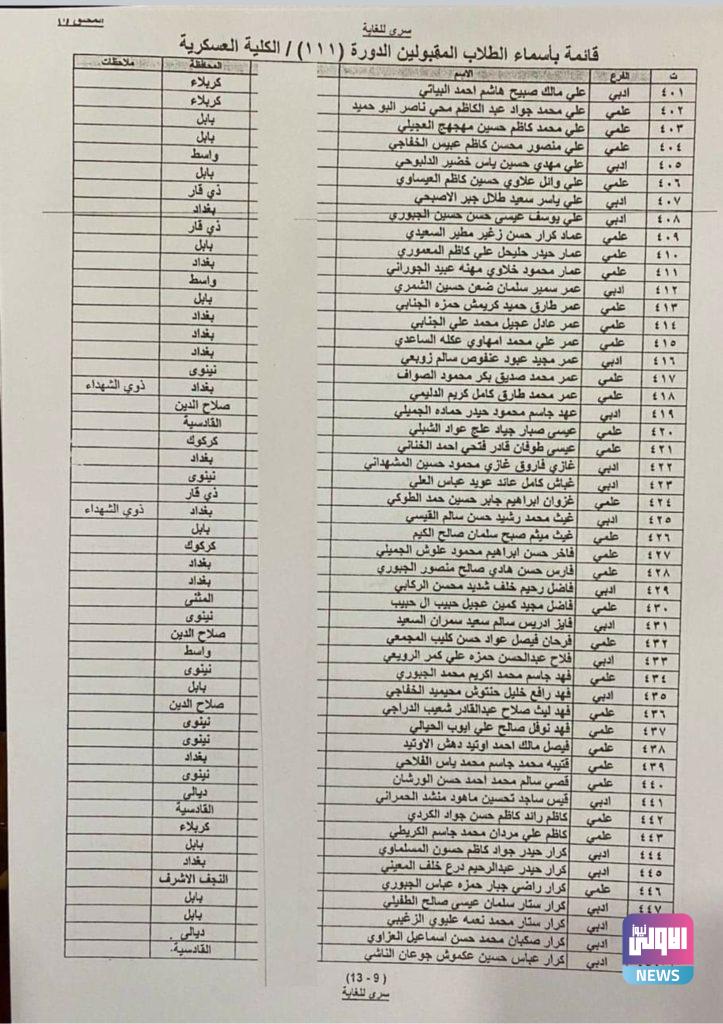 الملحق (١)
سري للغاية
قائمة بأسماء الطلاب المقبولين الدورة (١١١) / الكلية العسكرية
ت الفرع الاسم المحافظة ملاحظات
٤٠١ ادبي علي مالك صبيح هاشم احمد البياتي كربلاء
٤٠٢ علمي علي محمد جواد عبد الكاظم محي ناصر البو حميد كربلاء
٤٠٣ علمي علي محمد كاظم حسين مهجهج العجيلي بابل
٤٠٤ علمي علي منصور محسن كاظم عبيس الخفاجي بابل
٤٠٥ ادبي علي مهدي حسين ياس خضير الدلبوحي واسط
٤٠٦ علمي علي وائل علاوي حسين كاظم العيساوي بابل
٤٠٧ ادبي علي ياسر سعيد طلال جبر الاصبحي ذي قار
٤٠٨ ادبي علي يوسف عيسى حسن حسين الجبوري بغداد
٤٠٩ علمي عماد كرار حسن زغير مطير السعيدي ذي قار
٤١٠ علمي عمار حيدر حليحل علي كاظم المعموري بابل
٤١١ علمي عمار محمود خلاوي مهنه عبيد الجوراني بغداد
٤١٢ ادبي عمر سمير سلمان ضعن حسين الشمري واسط
٤١٣ علمي عمر طارق حميد كريمش حمزه الجنابي بابل
٤١٤ علمي عمر عادل عجيل محمد علي الجنابي بغداد
٤١٥ علمي عمر علي محمد امهاوي عكله الساعدي بغداد
٤١٦ ادبي عمر مجيد عبود عنفوص سالم زوبعي بغداد
٤١٧ علمي عمر محمد صديق بكر محمود الصواف نينوى
٤١٨ علمي عمر محمد طارق كامل كريم الدليمي بغداد ذوي الشهداء
٤١٩ ادبي عهد جاسم محمود حيدر حماده الجميلي صلاح الدين
٤٢٠ علمي عيسى صبار جياد علج عواد الشبلي القادسية
٤٢١ علمي عيسى طوفان قادر فتحي احمد الخناني كركوك
٤٢٢ ادبي غازي فاروق غازي محمود حسين المشهداني بغداد
٤٢٣ ادبي غباش كامل عائد عويد عباس العلي نينوى
٤٢٤ علمي غزوان ابراهيم جابر حسين حمد الطوكي ذي قار
٤٢٥ ادبي غيث محمد رشيد حسن سالم القيسي بغداد ذوي الشهداء
٤٢٦ علمي غيث ميثم صبح سلمان صالح الكيم بابل
٤٢٧ علمي فاخر حسن ابراهيم محمود علوش الجميلي كركوك
٤٢٨ علمي فارس حسن هادي صالح منصور الجبوري بغداد
٤٢٩ ادبي فاضل رحيم خلف شديد محسن الركابي بغداد
٤٣٠ علمي فاضل مجيد كمين عجيل حبيب ال حبيب المثنى
٤٣١ ادبي فايز ادريس سالم سعيد سمران السعيد نينوى
٤٣٢ علمي فرحان فيصل عواد حسن كليب المجمعي صلاح الدين
٤٣٣ ادبي فلاح عبدالحسن حمزه علي كمر الرويعي واسط
٤٣٤ علمي فهد جاسم محمد اكريم محمد الجبوري نينوى
٤٣٥ ادبي فهد رافع خليل حنتوش محيميد الخفاجي بابل
٤٣٦ علمي فهد ليث صلاح عبدالقادر شعيب الدراجي صلاح الدين
٤٣٧ علمي فهد نوفل صالح علي ايوب الحيالي نينوى
٤٣٨ علمي فيصل مالك احمد اوتيد دهش الاوتيد نينوى
٤٣٩ علمي قتيبه محمد جاسم محمد ياس الفلاحي بغداد
٤٤٠ علمي قصي سالم محمد احمد حسن الورشان نينوى
٤٤١ ادبي قيس ساجد تحسين ماهود منشد الحمراني ديالى
٤٤٢ علمي كاظم رائد كاظم حسن جواد الكردي القادسية
٤٤٣ علمي كاظم علي مردان محمد جاسم الكريطي كربلاء
٤٤٤ ادبي كرار حيدر جواد كاظم حسون المسلماوي بابل
٤٤٥ ادبي كرار حيدر عبدالرحيم درع خلف المعيني بغداد
٤٤٦ علمي كرار راضي جبار حمزه عباس الجبوري النجف الاشرف
٤٤٧ ادبي كرار ستار سلمان عيسى صالح الطفيلي بابل
ادبي كرار ستار محمد نعمه عليوي الزغيبي بابل
ادبي كرار صكبان محمد حسن اسماعيل العزاوي ديالى
ادبي كرار عباس حسين عكموش جوعان الناشي القادسية.
(13 - 9)
سري للغاية
الاولى نيوز
NEWS